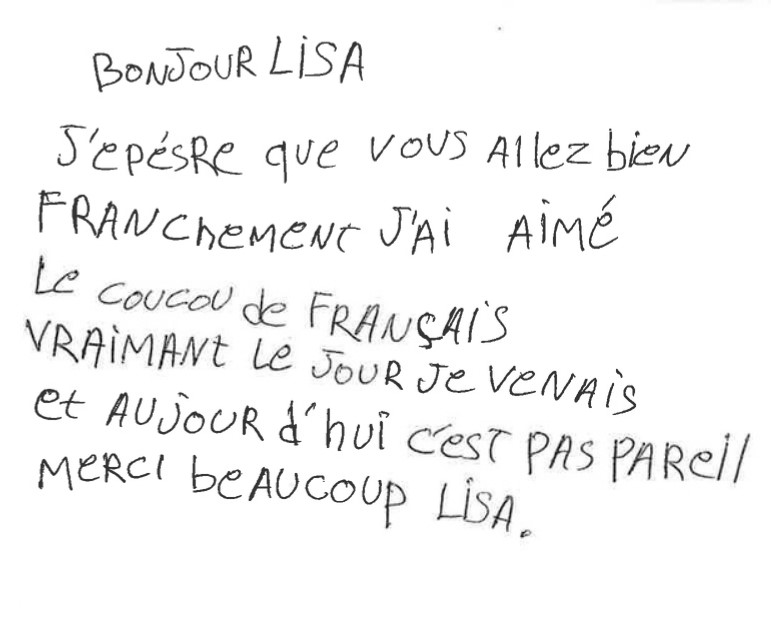 BONJOUR LISA
J'epésRe que vous Allez bien
FRANChEMENt J'Ai AiMÉ
Le coucou de FRANÇAiS
VRAiMANt Le JOUR Je VENAis
et AUjOUR d'hui c'esT PAS PAReil
MeRCi beAUCOUP LiSA.